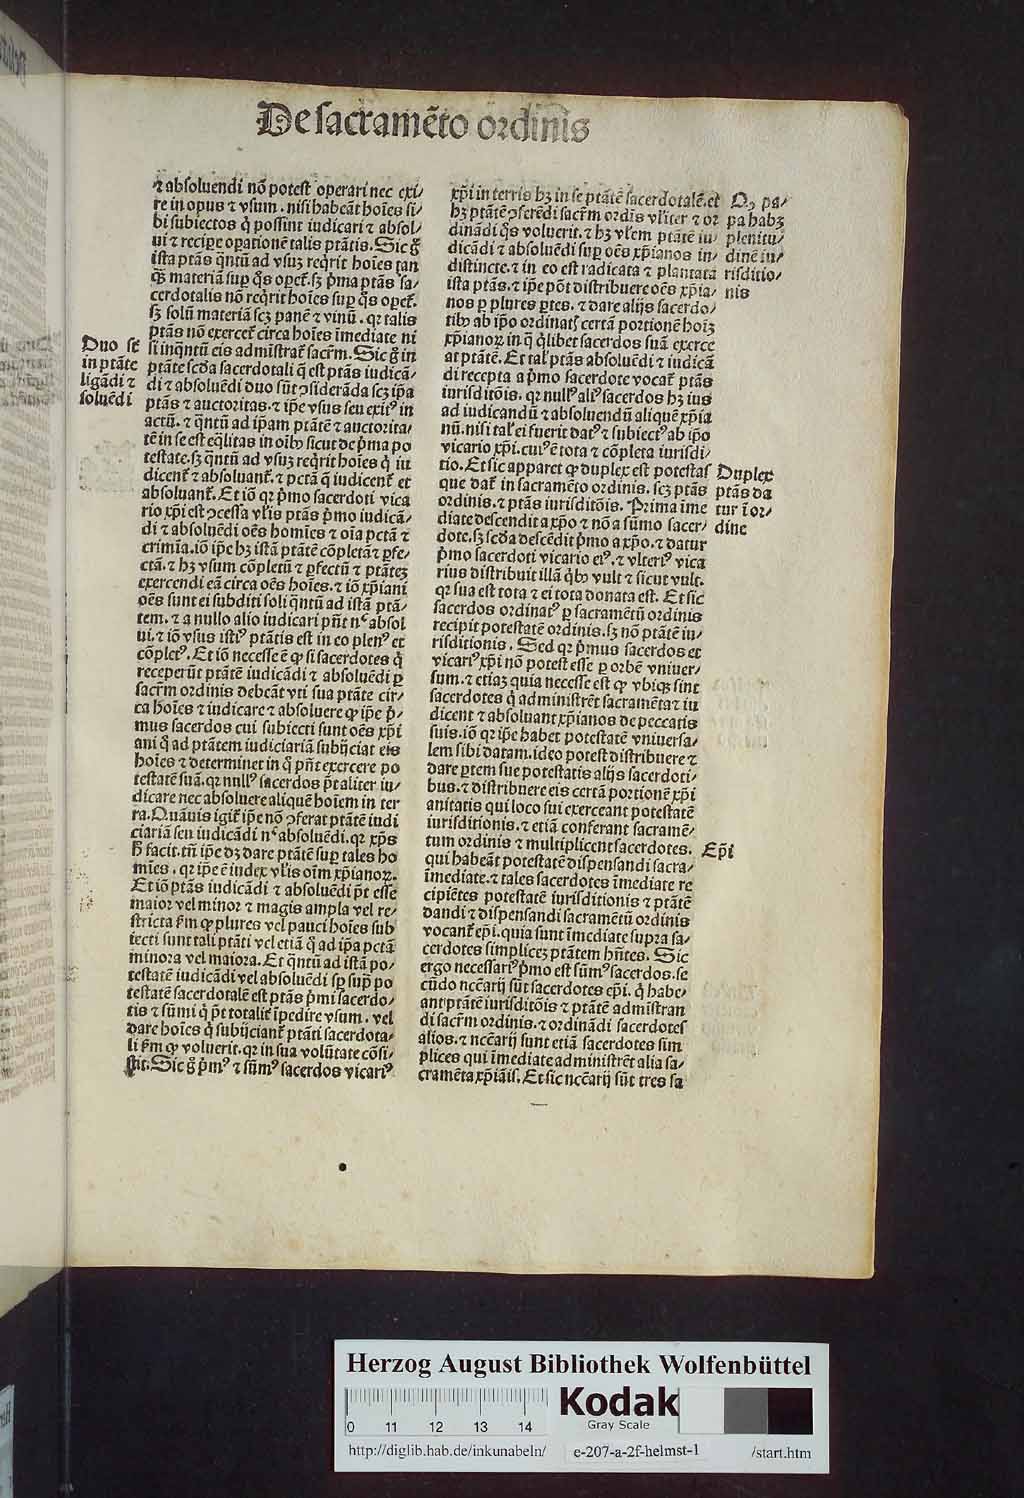 De sacramēto ordinis
⁊ absoluendi nō potest operari nec exi/
re in opus ⁊ vsum . nisi habeāt hoīes si/
bi subiectos q̇ possint iudicari ⁊ absol/
ui ⁊ recipe operationē talis ptātis. Sic g̊
ista ptās q̄ntū ad vsuꝫ reqͥrit hoīes tan
qꝫ materiā sup q̊s opet᷑. sꝫ pͥma ptās sa/
cerdotalis nō reqͥrit hoīes sup q̊s opet᷑.
sꝫ solū materiā scꝫ panē ⁊ vinū . qꝛ talis
ptās nō exercet᷑ circa hoīes īmediate ni
si inq̄ntū eis admīstrat᷑ sacrm̄. Sic g̊ in
ptāte scd̄a sacerdotali q̄ est ptās iudicā/
di ⁊ absoluēdi duo sūt ꝯsiderāda scꝫ ip̄a
ptās ⁊ auctoritas. ⁊ ip̄e vsus seu exitꝰ in
actū. ⁊ q̄ntū ad ipam ptātē ⁊ auctorita/
tē in se est eq̄litas in oībꝰ sicut de pͥma po
testate. sꝫ q̄ntū ad vsuꝫ reqͥrit hoīes q̇ iu
dicent᷑ ⁊ absoluant᷑. ⁊ pctā q̄ iudicent᷑ et
absoluant᷑. Et iō qꝛ pͥmo sacerdoti vica
rio xp̄i est ꝯcessa vl̄is ptās pͥmo iudicā/
di ⁊ absoluēdi oēs homīes ⁊ oīa pctā ⁊
crimīa. iō ip̄e hꝫ istā ptātē cōpletā ⁊ pfe/
ctā. ⁊ hꝫ vsum cōpletū ⁊ pfectū ⁊ ptāteꝫ
exercendi eā circa oēs hoīes. ⁊ iō xp̄iani
oēs sunt ei subditi soli q̄ntū ad istā ptā/
tem. ⁊ a nullo alio iudicari pn̄t nᶜ absol
ui. ⁊ iō vsus istiꝰ ptātis est in eo plenꝰ et
cōpletꝰ. Et iō necesse ē ꝙ si sacerdotes q̇
receperūt ptātē iudicādi ⁊ absoluēdi p
sacrm̄ ordinis debeāt vti sua ptāte cir/
ca hoīes ⁊ iudicare ⁊ absoluere ꝙ ip̄e pͥ/
mus sacerdos cui subiecti sunt oēs xp̄i
ani q̇ ad ptātem iudiciariā subijciat eis
hoīes ⁊ determinet in q̇ pn̄t exercere po
testatē suā. qꝛ nullꝰ sacerdos pt̄ aliter iu/
dicare nec absoluere aliquē hoīem in ter
ra. Quāuis igit᷑ ip̄e nō ꝯferat ptātē iudi
ciariā seu iudicādi nᶜ absoluēdi. qꝛ xp̄s
h̄ facit. tn̄ ip̄e dꝫ dare ptātē sup tales ho
mīes . qꝛ ip̄e ē iudex vl̄is oīm xp̄ianoꝝ.
Et iō ptās iudicādi ⁊ absoluēdi pt̄ esse
maior vel minor ⁊ magis ampla vel re/
stricta fm̄ ꝙ plures vel pauci hoīes sub
iecti sunt tali ptāti vel etiā q̇ ad ip̄a pctā
minora vel maiora. Et q̄ntū ad istā po/
testatē iudicādi vel absoluēdi sp̄ sup̄ po
testatē sacerdotalē est ptās pͥmi sacerdo/
tis ⁊ sūmi q̇ pt̄ totalit᷑ īpedire vsum . vel
dare hoīes q̇ subijciant᷑ ptāti sacerdota/
li fm̄ ꝙ voluerit. qꝛ in sua volūtate cōsi/
stit. Sic g̊ pͥmꝰ ⁊ sūmꝰ sacerdos vicariꝰ
Duo sē
in ptāte
ligādi ⁊
soluēdi
xp̄i in terris hꝫ in se ptātē sacerdotalē. et
hꝫ ptātē ꝯferēdi sacrm̄ ordīs vl̄iter ⁊ or
dinādi q̊s voluerit. ⁊ hꝫ vl̄em ptātē iu/
dicādi ⁊ absoluēdi sup oēs xp̄ianos in/
distincte. ⁊ in eo est radicata ⁊ plantata
ista ptās. ⁊ ip̄e pōt distribuere oēs xp̄ia/
nos p plures ptes. ⁊ dare alijs sacerdo/
tibꝰ ab ip̄o ordinatꝭ certā portionē hoīꝫ
xp̄ianoꝝ in q̄ q̇libet sacerdos suā exerce
at ptātē. Et tal᷑ ptās absoluēdi ⁊ iudicā
di recepta a pͥmo sacerdote vocat᷑ ptās
iurisditōis. qꝛ nullꝰ aliꝰ sacerdos hꝫ ius
ad iudicandū ⁊ absoluendū aliquē xp̄ia
nū. nisi tal᷑ ei fuerit datꝰ ⁊ subiectꝰ ab ip̄o
vicario xp̄i. cuiꝰ ē tota ⁊ cōpleta iurisdi/
tio. Et sic apparet ꝙ duplex est potestas
que dat᷑ in sacramēto ordinis. scꝫ ptās
ordinis. ⁊ ptās iurisditōis. Prima īme
diate descendit a xp̄o ⁊ nō a sūmo sacer/
dote. sꝫ scd̄a descēdit pͥmo a xp̄o. ⁊ datur
pͥmo sacerdoti vicario eiꝰ. ⁊ vlteriꝰ vica
rius distribuit illā qͥbꝰ vult ⁊ sicut vult.
qꝛ sua est tota ⁊ ei tota donata est. Et sic
sacerdos ordinatꝰ p sacramētū ordinis
recipit potestatē ordinis. sꝫ nō ptātē iu/
risditionis . Sed qꝛ pͥmus sacerdos et
vicariꝰ xp̄i nō potest esse p orbē vniuer/
sum. ⁊ etiaꝫ quia necesse est ꝙ vbiqꝫ sint
sacerdotes q̇ administrēt sacramēta ⁊ iu
dicent ⁊ absoluant xp̄ianos de peccatis
suis. iō qꝛ ip̄e habet potestatē vniuersa/
lem sibi datam. ideo potest distribuere ⁊
dare ptem sue potestatis alijs sacerdoti/
bus. ⁊ distribuere eis certā portionē xp̄i
anitatis qui loco sui exerceant potestatē
iurisditionis. ⁊ etiā conferant sacramē/
tum ordinis ⁊ multiplicent sacerdotes.
qui habeāt potestatē dispensandi sacra/
īmediate. ⁊ tales sacerdotes īmediate re
cipiētes potestatē iurisditionis ⁊ ptātē
dandi ⁊ dispensandi sacramētū ordinis
vocant᷑ ep̄i. quia sunt īmediate supra sa/
cerdotes simpliceꝫ ptātem hn̄tes. Sic
ergo necessariꝰ pͥmo est sūmꝰ sacerdos. se
cūdo nccārij sūt sacerdotes ep̄i. q̇ habe/
ant ptātē iurisditōis ⁊ ptātē admīstran
di sacrm̄ ordinis. ⁊ ordinādi sacerdotes
alios. ⁊ nccārij sunt etiā sacerdotes sim
plices qui īmediate administrēt alia sa/
cramēta xp̄iāis. Et sic nccārij sūt tres sa
Qꝙ pa/
pa habꝫ
plenitu/
dinē iu/
risditio/
nis
Duplex
ptās da
tur ī or/
dine
Ep̄i
Herzog August Bibliothek Wolfenbüttel
0 11 12 13 14
Kodak
Gray Scale
http://diglib.hab.de/inkunabeln/ e-207-a-2f-helmst-1 /start.htm